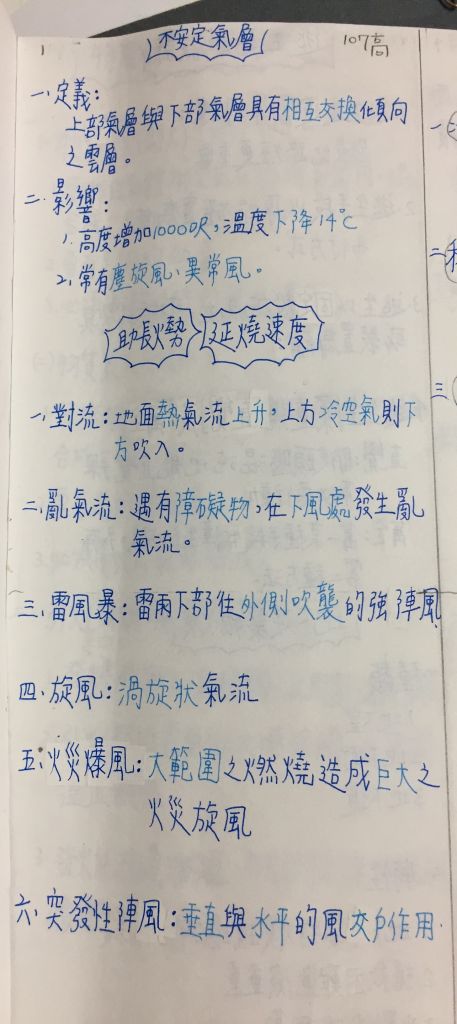 1
不安定氣層
107高
一、定義：
上部氣層與下部氣層具有相互交換傾向
之雲層。
二、影響：
1. 高度增加1000呎，溫度下降14℃
2. 常有塵旋風、異常風。
助長火勢 延燒速度
一、對流：地面熱氣流上升，上方冷空氣則下
方吹入。
二、亂氣流：遇有障礙物，在下風處發生亂
氣流。
三、雷風暴：雷雨下部往外側吹襲的強陣風
四、旋風：渦旋狀氣流
五、火災爆風：大範圍之燃燒造成巨大之
火災旋風
六、突發性陣風：垂直與水平的風交戶作用.
一
二
三